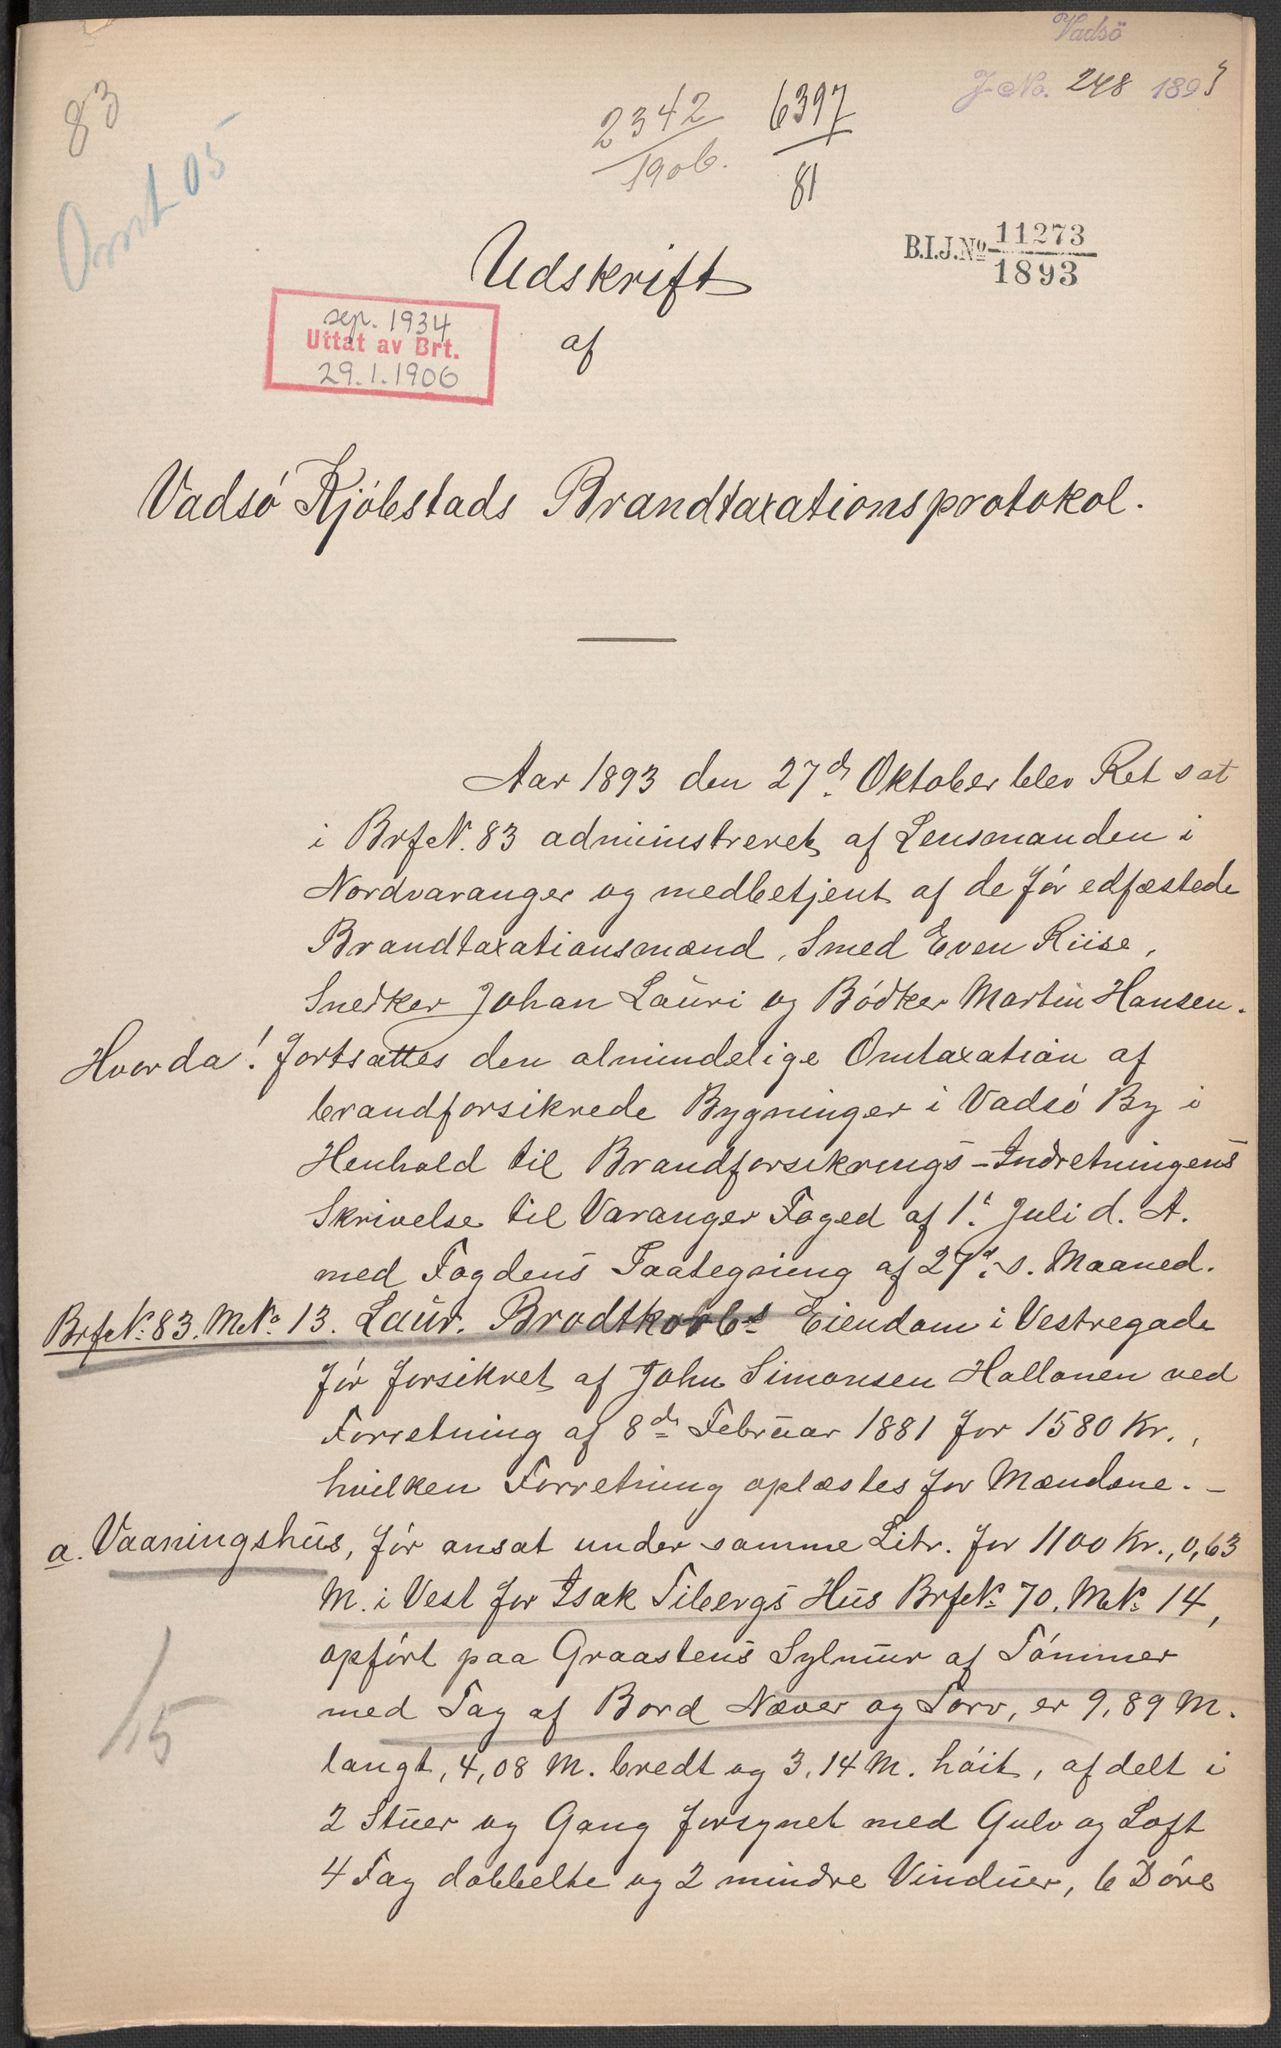 Vadsö
J-No. 248 1893
83
2342
1906.
6397
81
Omt 05
B.I.J.No 11273
1893
Udskrift
sep. 1934
Uttat av Brt.
29.1.1906
af
Vadsó Kjóbstads Brandtaxationsprotokol.
Aar 1893 den 27de Oktober blev Ret sat
i BrfN. 83 administreret af Lensmanden i
Nordvaranger og medbetjent af de før edfæstede
Brandtaxationsmænd, Smed Even Riise,
Snedker Johan Lauri og Bódker Martin Hansen.
Hvorda! fortsattes den almindelige Omtaxation af
brandforsikrede Bygninger i Vadsó By i
Henhold til Brandforsikrings-Indretningens
Skrivelse til Varanger Foged af 1ste Juli d. A.
med Fogdens Paategning af 27de s. Maaned.
BrfN: 83. MNo 13. Laur. Brodtkorbs Eiendom i Vestregade
før forsikret af John Simonsen Hallonen ved
Forretning af 8de Februar 1881 for 1580 Kr.,
hvilken Forretning oplæstes for Mændene. -
a. Vaaningshus, før ansat under samme Litr. for 1100 Kr., 0,63
M. i Vest for Isak Tibergs Hus BrfN: 70. MN: 14,
opført paa Graastens Sylmur af Tómmer
med Tag af Bord Næver og Torv, er 9,89 M.
langt, 4,08 M. bredt og 3,14 M. hóit, afdelt i
15
2 Stuer og Gang forsynet med Gulv og Loft
4 Fag dobbelte og 2 mindre Vinduer, 6 Dóre